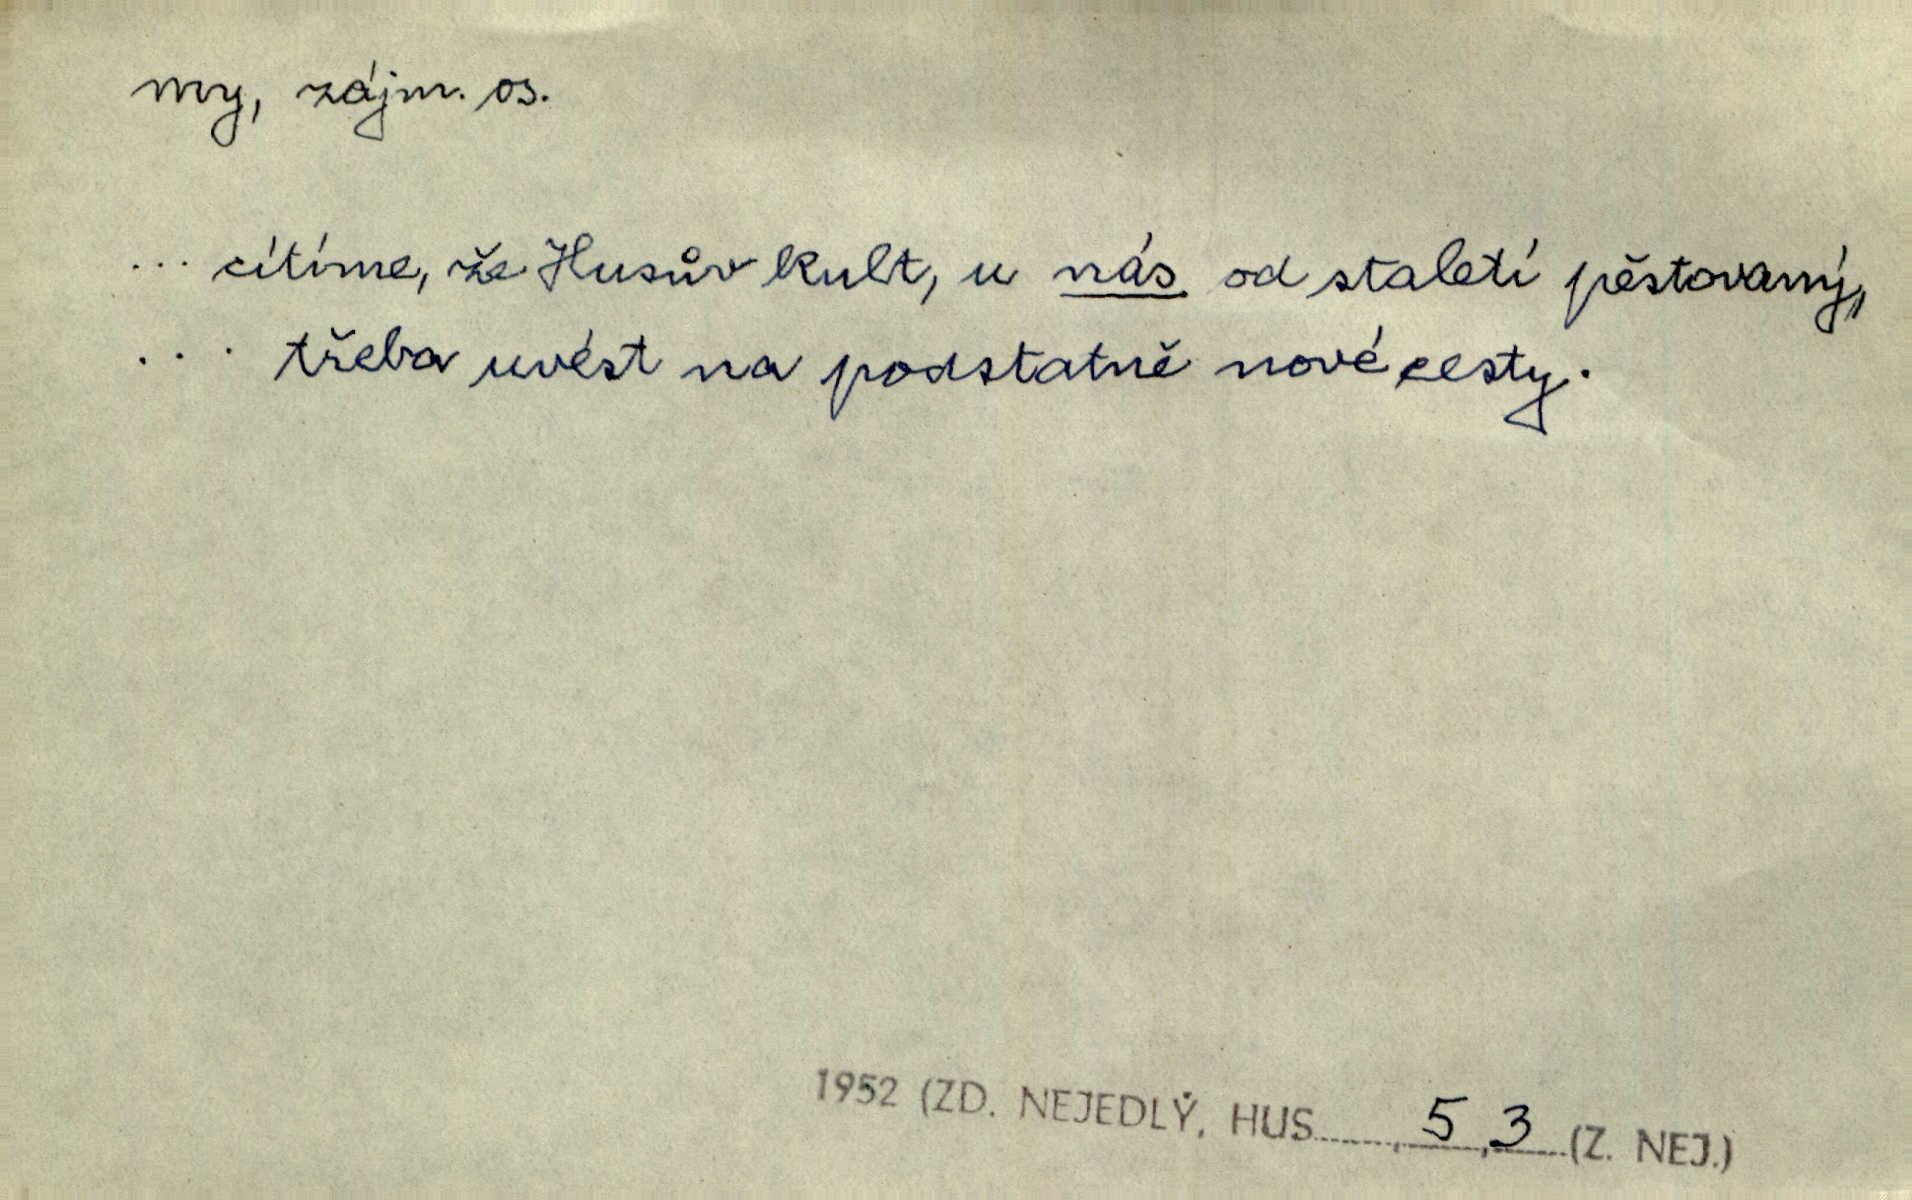 my, zájm. os.
... cítíme, že Husův kult, u nás od staletí pěstovaný,
... třeba uvést na podstatně nové cesty.
1952 (ZD. NEJEDLÝ, HUS........,5,3...(Z. NEJ.)